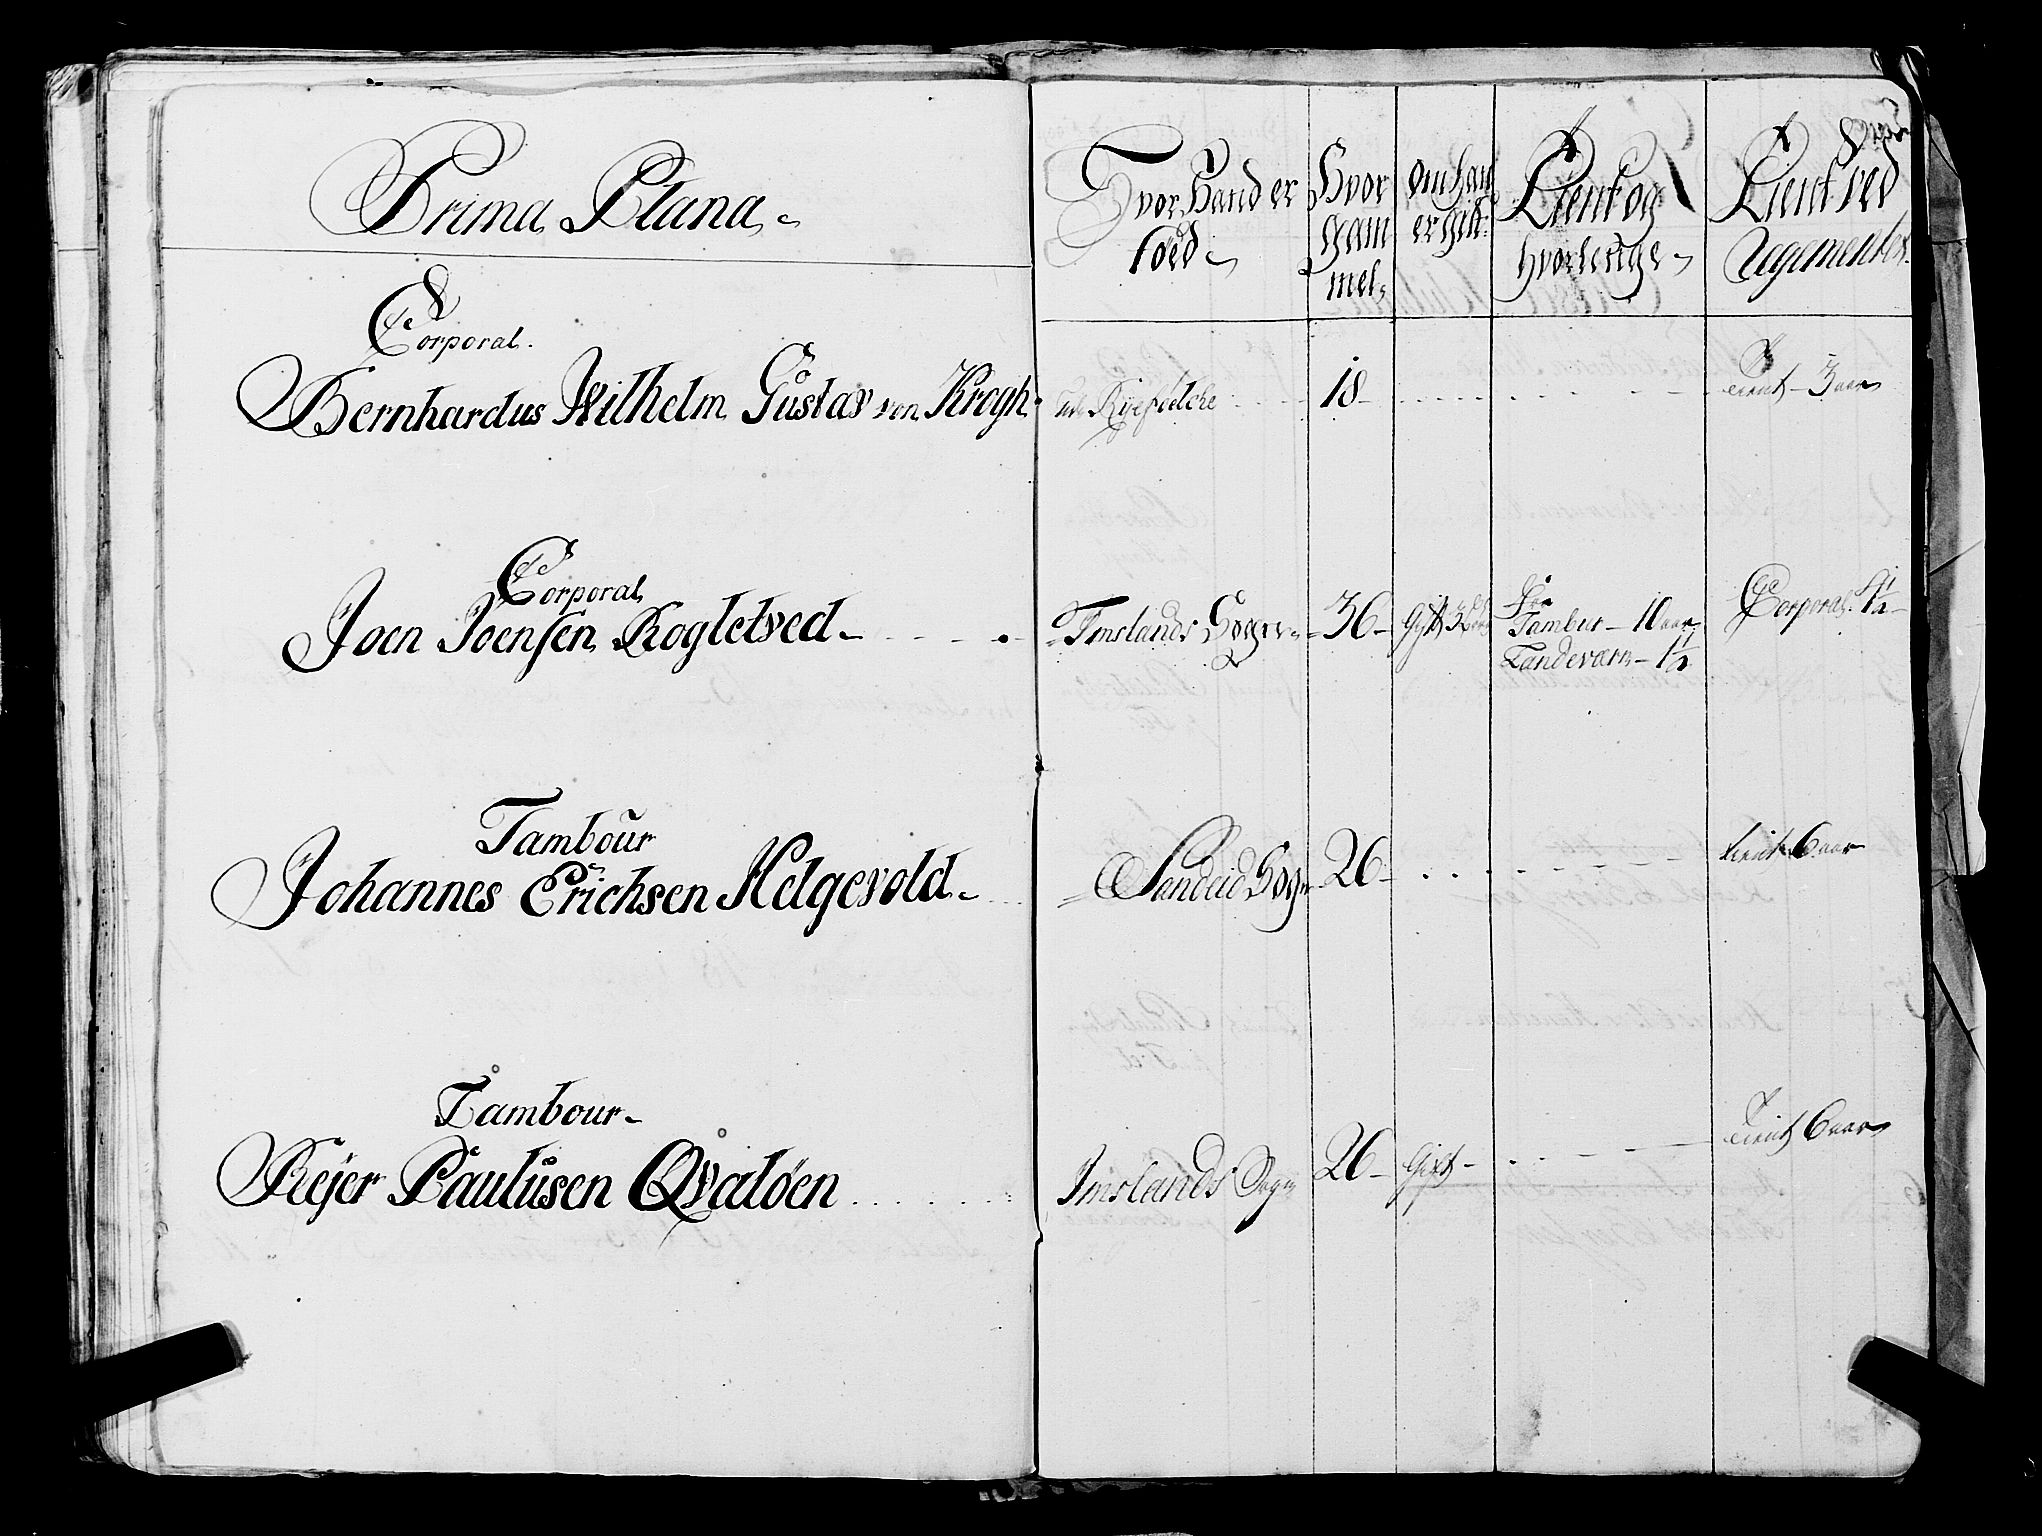 Prima Plana
Hvor Hand er
föed
Hvor
gam
mel
om han
er gift
Tient og
hvorlenge
Tient ved
Regimentet
Corporal.
Bernhardus Wilhelm Gustav von Krogh
Ryefelche
18
Tient 3 aar
Corporal
Joen Joensen Rogletved
Imslands Sogn
36
Gift
för
Tambur 10 aar
Landeværn 1½
Corporal 1½
Tambour
Johannes Erichsen Helgevold
Sandeid Sogn
26
tient 6 aar
Tambour
Rejer Paulusen Qvaløen
Imslands Sogn
26
Gift
Tient 6 aar